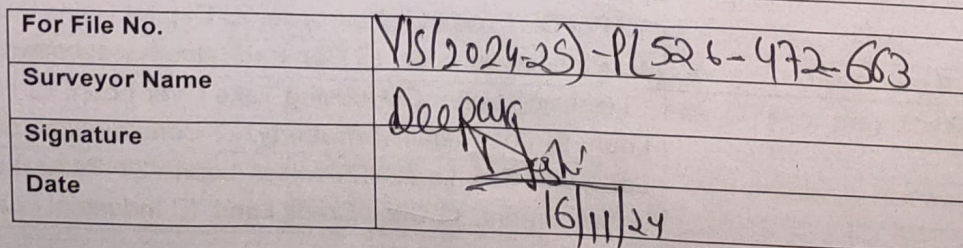 For File No. VIS(2024-25)-PL526-472-663
Surveyor Name Deepak
Signature Joshi
Date 16/11/24